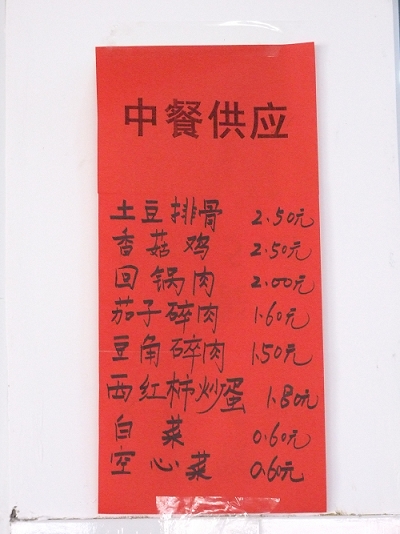 中餐供应
土豆排骨 2.50元
香菇鸡 2.50元
回锅肉 2.00元
茄子碎肉 1.60元
豆角碎肉 1.50元
西红柿炒蛋 1.80元
白菜 0.60元
空心菜 0.60元